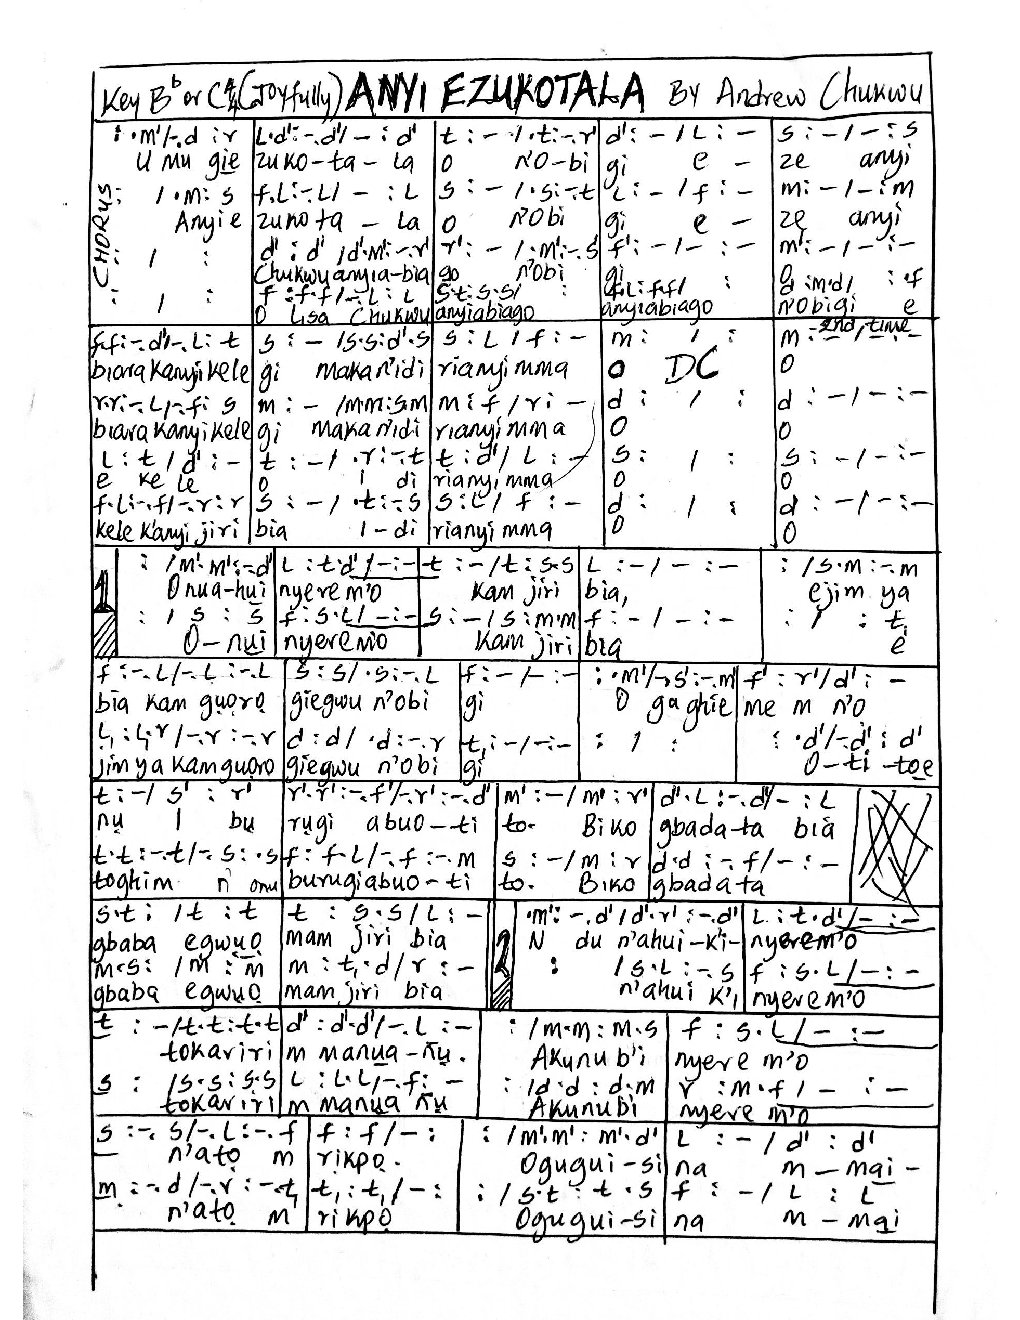 Key Bb or C 4/4 (Joyfully) ANYI EZUKOTALA By Andrew Chukwu
CHORUS
: ·m'/-.d :r | L.d':-.d'/- : d' | t : - /·t:-.r' | d' : - / L : - | s : - / - : s
U mu gie | zuko-ta-la | o n'o-bi | gi e - | ze anyi
: /·m: s | f.L:-.L/ - : L | s : - /·s:-.t | L : - / f : - | m : - / - : m
Anyi e | zukota - la | o n'obi | gi e - | ze anyi
: / : | d' : d' /d'.m':-.r' | r' : - /:m':-.s' | f' : - / - : - | m' : - / - : -
Chukwu anyia-bia | go n'obi | gi
: / : | f :f.f/-.L : L | s:t:s.s/ : | f.L:f.f/ : | d :m.d/ : ·f
O Lisa Chukwu | anyiabiago | anyiabiago | n'obigi e
f.f:-.d'/-.L : t | s : - /s.s:d'.s | s : L / f : - | m : / : | m - 2nd time / - : -
biara kanyi kele | gi maka n'idi | rianyi mma | O DC | O
r.r:-.L/-.f : s | m : - /m.m:s.m | m : f / r : - | d : / : | d : - / - : -
biara kanyi kele | gi maka n'idi | rianyi mma | O | O
L : t / d' : - | t : - /·r:-.t | t : d' / L : - | s : / : | s : - / - : -
e ke le | o i di | rianyi mma | O | O
f.L:-.f/-.r : r | s : - /·t:-.s | s : L / f : - | d : / : | d : - / - : -
kele kanyi jiri | bia i-di | rianyi mma | O | O
1 | : /m'.m':-.d' | L : t.d'/-:- | t : - /t : s.s | L : - / - : - | : /s.m :-.m
Onua-hui | nyere m'o | kam jiri | bia, | ejim ya
: / s : s | f : s.L/-:- | s : - /s : m.m | f : - / - : - | : / : t,
O-nui | nyeremo | kam jiri | bia | e
f :-.L/-.L :-.L | s : s/ ·s:-.L | f : - / - : - | : ·m'/-.s':-.m' | f' : r'/d' : -
bia kam guoro | giegwu n'obi | gi | O ga ghie | me m n'o
L, : L,.r/-.r :-.r | d : d/ ·d:-.r | t, : - / - : - | : / : | : ·d'/-.d' : d'
jim ya kam guoro | giegwu n'obi | gi | | O-ti-toe
t : -/ s' : r' | r'.r':-.f'/-.r':-.d' | m' : -/m' : r' | d'.L:-.d'/- : L
nu i bu | rugi abuo-ti | to. Biko | gbada-ta bia
t.t:-.t/-.s : ·s | f : f.L/-.f :-.m | s : -/m : r | d.d :-.f/- : -
toghim n'onu | burugiabuo-ti | to. Biko | gbadata
s.t : /t : t | t : s.s/L : - | 2 | ·m':-.d'/d'.r':-.d' | L : t.d'/- : -
gbaba egwuo | mam jiri bia | N du n'ahui-k'i- | nyerem'o
m.s: /m : m | m : t,.d/r : - | : /s.L:-.s | f : s.L/- : -
gbaba egwuo | mam jiri bia | n'ahui k'i | nyerem'o
t : -/t.t:t.t | d' : d'.d'/-.L : - | : /m.m : m.s | f : s.L/- : -
tokariri | m manua-nu. | Akunu b'i | nyere m'o
s : /s.s:s.s | L : L.L/-.f : - | : /d.d : d.m | r : m.f/- : -
tokariri | m manua nu | Akunubi | nyere m'o
s :-.s/-.L:-.f | f : f/- : | : /m'.m' : m'.d' | L : - / d' : d'
n'ato m | rikpo. | Ogugui-si | na m-mai-
m :-.d/-.r :-.t, | t, : t,/- : | : /s.t : t.s | f : - / L : L
n'ato m | rikpo | Ogugui-si | na m-mai